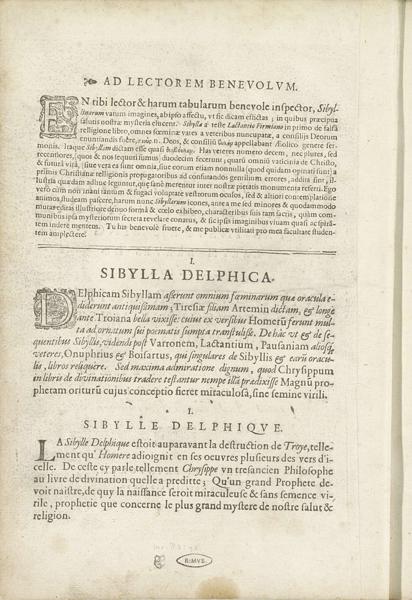 AD LECTOREM BENEVOLVM.
EN tibi lector & harum tabularum benevole inspector, Sibyl-
linarum vatum imagines, ab ipso affectu, ut sic dicam efictas; in quibus præcipua
salutis nostræ mysteria eluent. Sibylla à teste Lactantio Firmiano in primo de falsa
relligione libro, omnes fœminæ vates a veteribus nuncupatæ, a consilijs Deorum
enuntiandis Deos, & consilij appellabant Æolico genere ser-
monis. Itaque Sibyllam dictam esse quasi Has veteres numero decem, nec plures, sed
recentiores, (quos & nos sequuti sumus) duodecim fecerunt; quarū omniū vaticinia de Christo,
& futurâ vitâ, (sive vera ea sunt omnia, sive eorum etiam nonnulla (quod quidam opinati sunt) a
primis Christianæ relligionis propugatoribus ad confutandos gentilium errores, addita sint, il-
lustria quædam adhuc legantur, quæ sanè merentur inter nostræ pietatis monumenta referri. Ego
vero cum non inani tantum & fugaci voluptate vestrorum oculos, sed & altiori contemplatione
animos, studeam pascere, harum nunc Sibyllarum icones, antea me sed minores & quodammodo
mutas editas illustriore denuo formâ & cœlo exhibeo, characteribus suis tam factis, quàm com-
munibus ipsa mysteriorum secreta revelare conatus, & sic ipsis imaginibus vivam quasi ac spiran-
tem indere mentem. Tu his benevole fruere, & me publicæ utilitati pro mea facultate studen-
tem amplectere.
I.
SIBYLLA DELPHICA.
DElphicam Sibyllam aserunt omnium fœminarum quæ oracula e-
diderunt antiquissimam; Tiresiæ filiam Artemin dictam, & longè
ante Troiana bella vixisse: cuius ex versibus Homerū ferunt mul-
ta ad ornatum sui poematis sumpta transtulisse. De hâc vt & de se-
quentibus Sibyllis, videndi post Varronem, Lactantium, Pausaniam aliosq̃
veteres, Onuphrius & Boisartus, qui singulares de Sibyllis & earū oracu-
lis, libros reliquere. Sed maxima admiratione dignum, quod Chrysippum
in libris de divinationibus tradere testantur nempe illā prædixisse Magnū pro-
phetam oriturū cujus conceptio fieret mitaculosa, sine semine virili.
I.
SIBYLLE DELPHIQVE.
LA Sibylle Delphique estoit auparavant la destruction de Troye, telle-
ment qu' Homere adioignit en ses oeuvres plusieurs des vers d'i-
celle. De ceste cy parle tellement Chrysippe vn tresancien Philosophe
au livre de divination quelle a preditte; Qu'un grand Prophete de-
voit naistre, de quy la naissance seroit miraculeuse & sans semence vi-
rile, prophetie que concerne le plus grand mystere de nostre salut &
religion.
R:MVS.